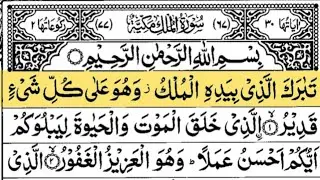 اٰیَاتُهَا ۳۰ (۶۷) سُوْرَةُ الْمُلْكِ مَكِّيَّةٌ (۷۷) رُكُوْعَاتُهَا ۲
بِسْمِ اللهِ الرَّحْمٰنِ الرَّحِيْمِ
تَبٰرَكَ الَّذِيْ بِيَدِهِ الْمُلْكُ ز وَهُوَ عَلٰى كُلِّ شَیْءٍ
قَدِيْرُ ۙ ۱ ۨالَّذِيْ خَلَقَ الْمَوْتَ وَالْحَيٰوةَ لِيَبْلُوَكُمْ
اَيُّكُمْ اَحْسَنُ عَمَلًا ؕ وَهُوَ الْعَزِيْزُ الْغَفُوْرُ ۙ ۲ الَّذِيْ